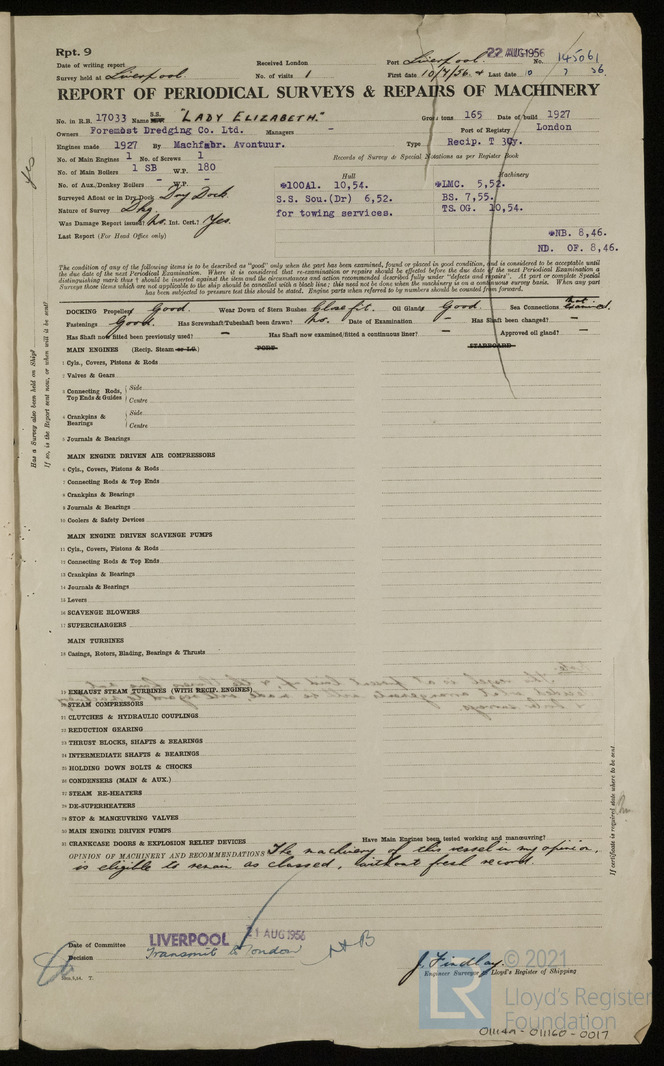 Rpt. 9
22 AUG 1956
Date of writing report Received London Port Liverpool. No. 145061
Survey held at Liverpool. No. of visits 1 First date 10/7/56. Last date 10 7 56
REPORT OF PERIODICAL SURVEYS & REPAIRS OF MACHINERY
No. in R.B. 17033 Name S.S. "LADY ELIZABETH." Gross tons 165 Date of build 1927
Owners Foremost Dredging Co. Ltd. Managers - Port of Registry London
Engines made 1927 By Machfabr. Avontuur. Type Recip. T 3Cy.
No. of Main Engines 1 No. of Screws 1 Records of Survey & Special Notations as per Register Book
No. of Main Boilers 1 SB W.P. 180 Hull Machinery
No. of Aux./Donkey Boilers - W.P. - 100A1. 10,54. LMC. 5,52.
Surveyed Afloat or in Dry Dock Dry Dock S.S. Sou.(Dr) 6,52. BS. 7,55.
Nature of Survey Dkg for towing services. TS.OG. 10,54.
Was Damage Report issued? No. Int. Cert.? Yes.
Last Report (For Head Office only) NB. 8,46.
ND. OF. 8,46.
The condition of any of the following items is to be described as "good" only when the part has been examined, found or placed in good condition, and is considered to be acceptable until
the due date of the next Periodical Examination. Where it is considered that re-examination or repairs should be effected before the due date of the next Periodical Examination a
distinguishing mark thus † should be inserted against the item and the circumstances and action recommended described fully under "defects and repairs". At port or complete Special
Surveys those items which are not applicable to the ship should be cancelled with a black line; this need not be done when the machinery is on a continuous survey basis. When any part
has been subjected to pressure test this should be stated. Engine parts when referred to by numbers should be counted from forward.
DOCKING Propeller Good. Wear Down of Stern Bushes Close fit. Oil Glands Good. Sea Connections Not Examined.
Fastenings Good. Has Screwshaft/Tubeshaft been drawn? No. Date of Examination - Has Shaft been changed? -
Has Shaft now fitted been previously used? - Has Shaft now examined/fitted a continuous liner? - Approved oil gland? -
MAIN ENGINES (Recip. Steam or I.C.) PORT STARBOARD
1 Cyls., Covers, Pistons & Rods
2 Valves & Gears
3 Connecting Rods, Top Ends & Guides Side
Centre
4 Crankpins & Bearings Side
Centre
5 Journals & Bearings
MAIN ENGINE DRIVEN AIR COMPRESSORS
6 Cyls., Covers, Pistons & Rods
7 Connecting Rods & Top Ends
8 Crankpins & Bearings
9 Journals & Bearings
10 Coolers & Safety Devices
MAIN ENGINE DRIVEN SCAVENGE PUMPS
11 Cyls., Covers, Pistons & Rods
12 Connecting Rods & Top Ends
13 Crankpins & Bearings
14 Journals & Bearings
15 Levers
16 SCAVENGE BLOWERS
17 SUPERCHARGERS
MAIN TURBINES
18 Casings, Rotors, Blading, Bearings & Thrusts
19 EXHAUST STEAM TURBINES (WITH RECIP. ENGINES)
20 STEAM COMPRESSORS
21 CLUTCHES & HYDRAULIC COUPLINGS
22 REDUCTION GEARING
23 THRUST BLOCKS, SHAFTS & BEARINGS
24 INTERMEDIATE SHAFTS & BEARINGS
25 HOLDING DOWN BOLTS & CHOCKS
26 CONDENSERS (MAIN & AUX.)
27 STEAM RE-HEATERS
28 DE-SUPERHEATERS
29 STOP & MANŒUVRING VALVES
30 MAIN ENGINE DRIVEN PUMPS
31 CRANKCASE DOORS & EXPLOSION RELIEF DEVICES Have Main Engines been tested working and manœuvring?
OPINION OF MACHINERY AND RECOMMENDATIONS The machinery of this vessel in my opinion,
is eligible to remain as classed, without fresh record.
Date of Committee LIVERPOOL 21 AUG 1956
Decision Transmit to London
J. Findlay.
Engineer Surveyor to Lloyd's Register of Shipping
Has a Survey also been held on Ship? Yes
If so, is the Report sent now, or when will it be sent?
If certificate is required state where to be sent.
LR © 2021
Lloyd's Register
Foundation
011149 - 011160 - 0017